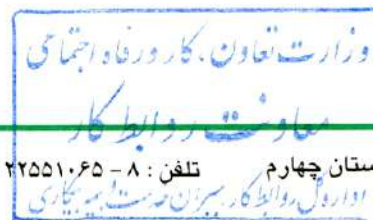 وزارت تعاون، کار و رفاه اجتماعی
معاونت روابط کار
ستان چهارم تلفن : ۸ - ۲۲۵۵۱۰۶۵
اداره کل روابط کار و جبران خدمت و بیمه بیکاری